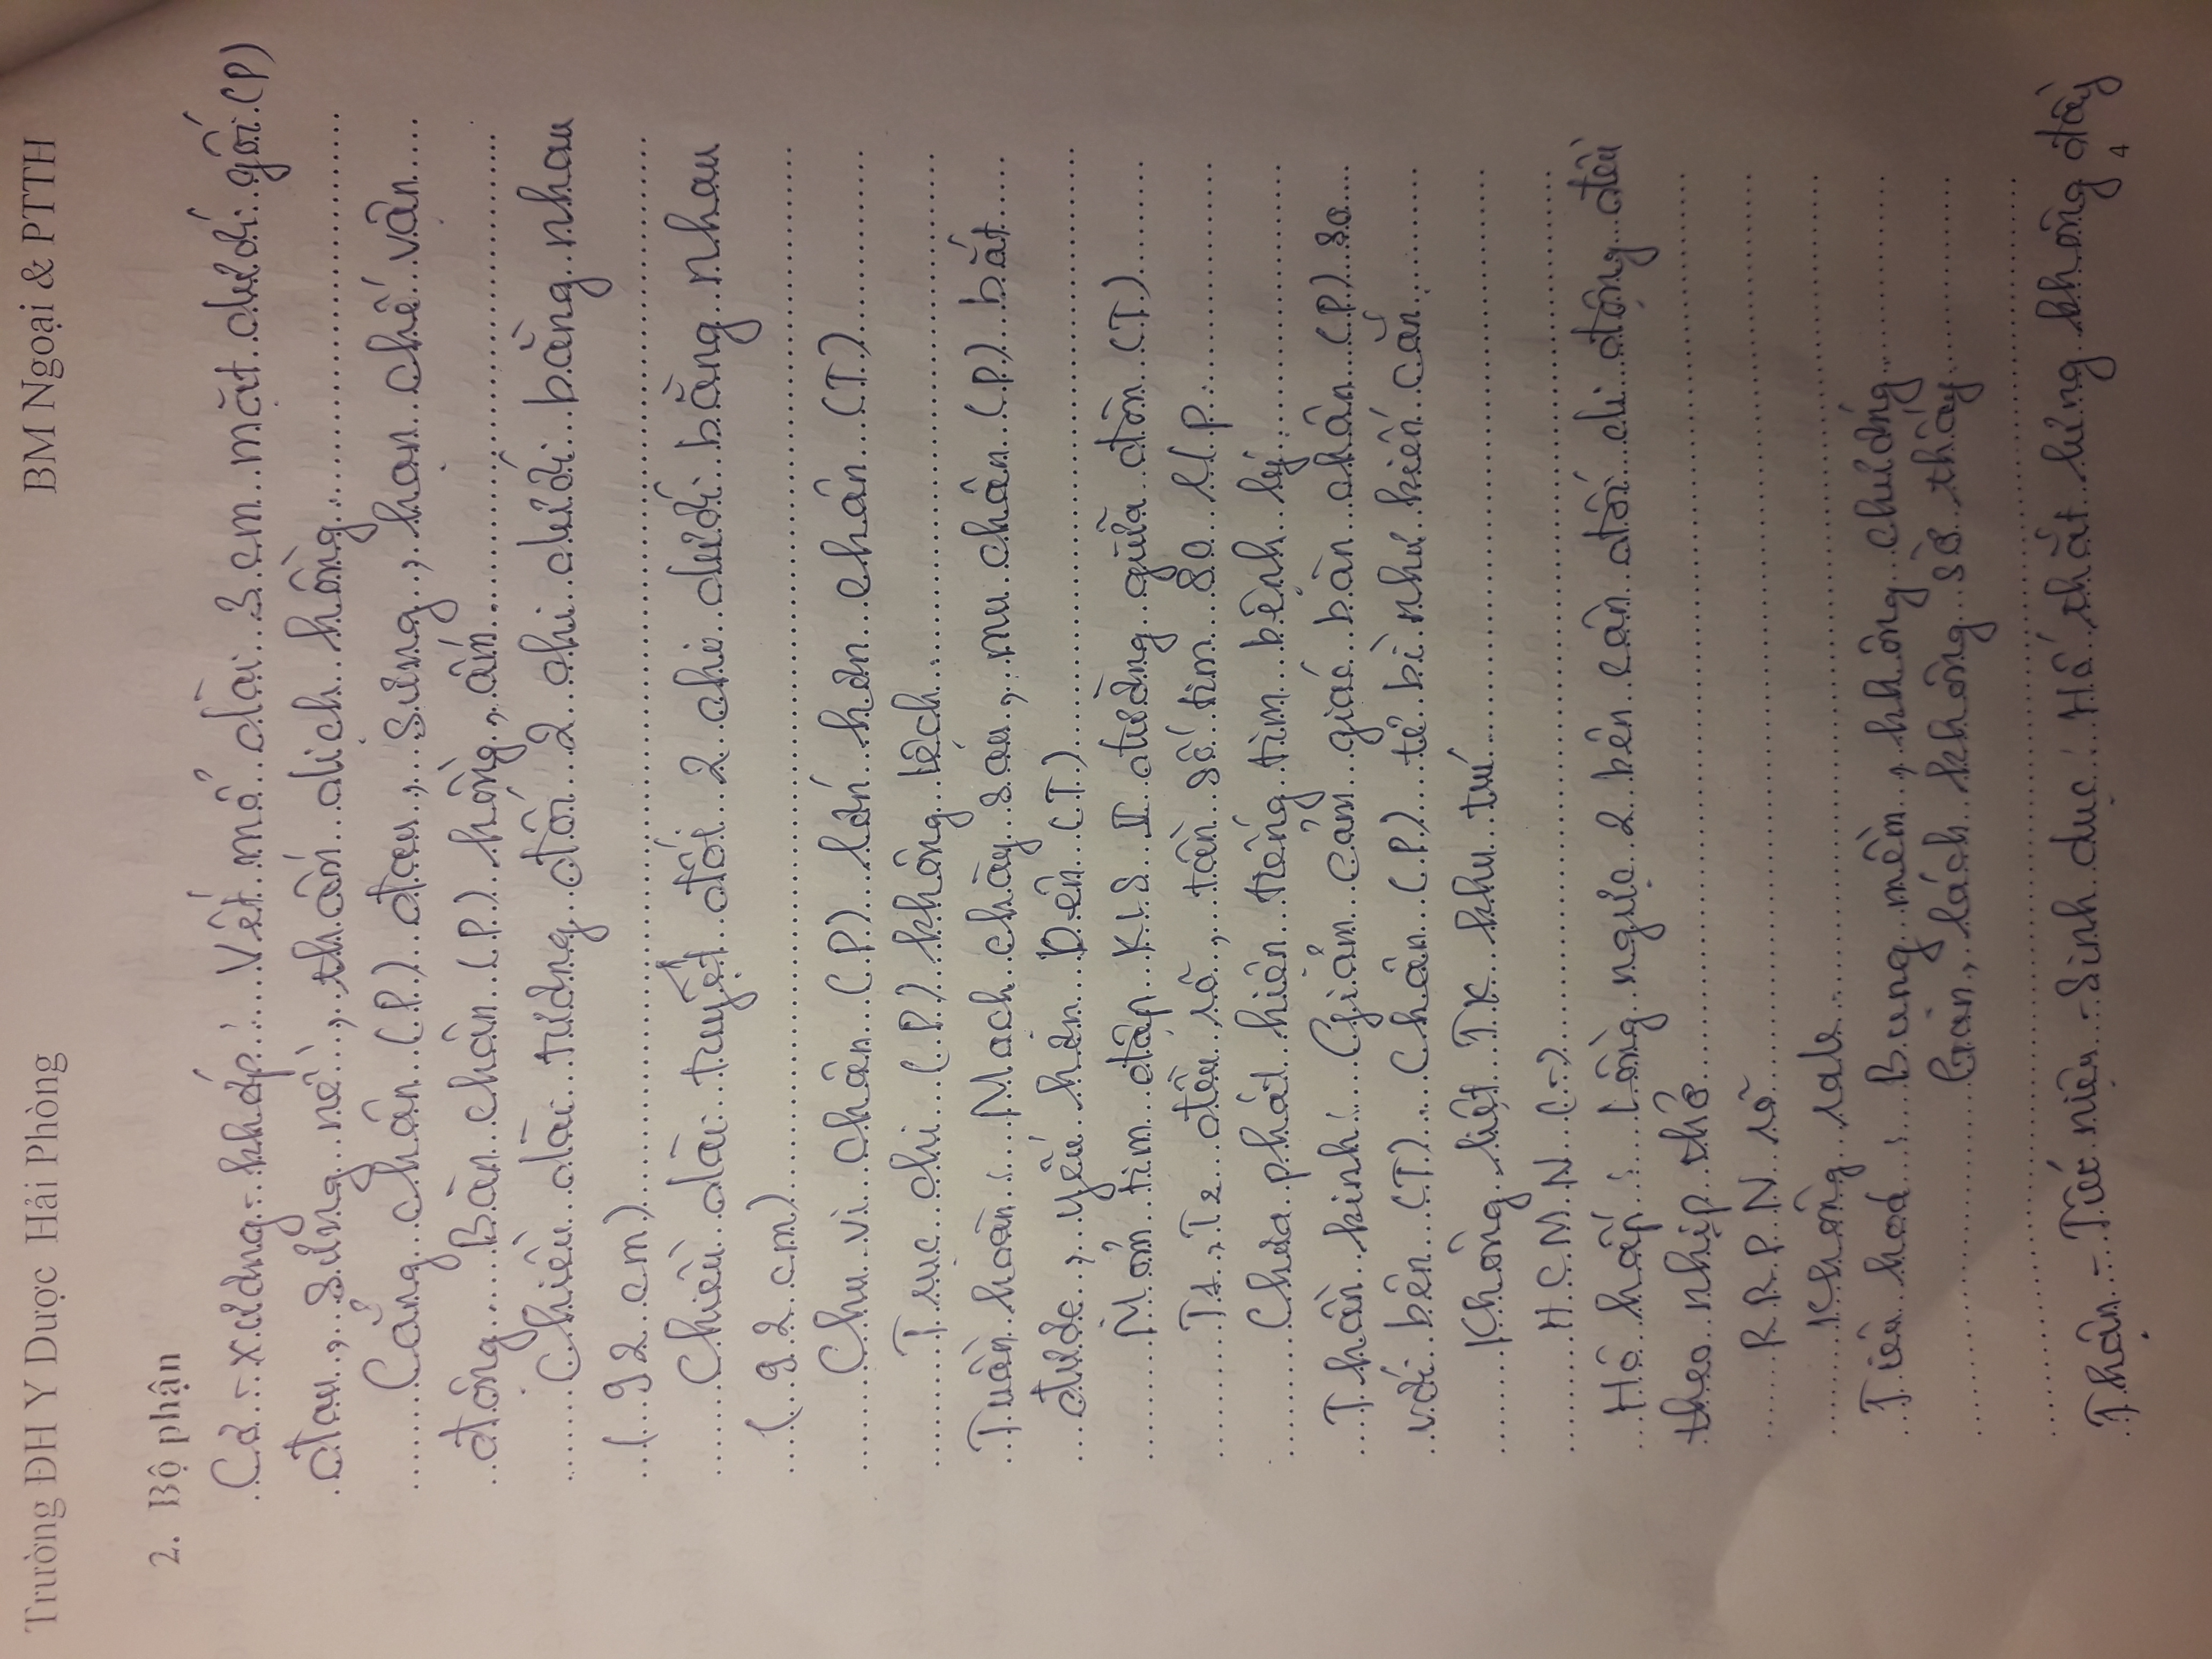 Trường ĐH Y Dược Hải Phòng BM Ngoại & PTTH
2. Bộ phận
Cơ - xương - khớp : Vết mổ dài 3 cm mặt dưới gối (P)
đau, sưng nề, thấm dịch hồng
Cẳng chân (P) đau, sưng, hạn chế vận
động Bàn chân (P) hồng, ấm
Chiều dài tương đối 2 chi dưới bằng nhau
(92 cm)
Chiều dài tuyệt đối 2 chi dưới bằng nhau
(92 cm)
Chu vi chân (P) lớn hơn chân (T)
Trục chi (P) không lệch
Tuần hoàn : Mạch chày sau, mu chân (P) bắt
được, yếu hơn bên (T)
Mỏm tim đập KLS V đường giữa đòn (T)
T1, T2 đều rõ, tần số tim 80 l/p
Chưa phát hiện tiếng tim bệnh lý
Thần kinh : Giảm cảm giác bàn chân (P) so
với bên (T) Chân (P) tê bì như kiến cắn
Không liệt TK khu trú
HCMN (-)
Hô hấp : Lồng ngực 2 bên cân đối di động đều
theo nhịp thở
RRPN rõ
Không rale
Tiêu hoá : Bụng mềm, không chướng
Gan, lách không sờ thấy
Thận - Tiết niệu - Sinh dục : Hố thắt lưng không đầy
4